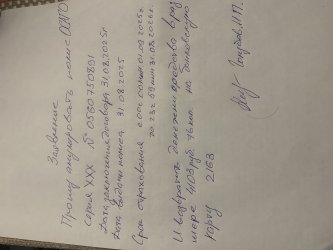 Заявление
Прошу анулировать полис ОСАГО
серия ХХХ № 0560750891
Дата заключения договора 31.08.2025г
Дата выдачи полиса 31.08.2025
Срок страхования с 00:00 мин 01.09.2025г.
по 23ч 59мин 31.08.2026г.
И возвратить денежные средства в раз
мере 4103 руб. 76 коп. на банковскую
карту 2163
Голубов И.П.